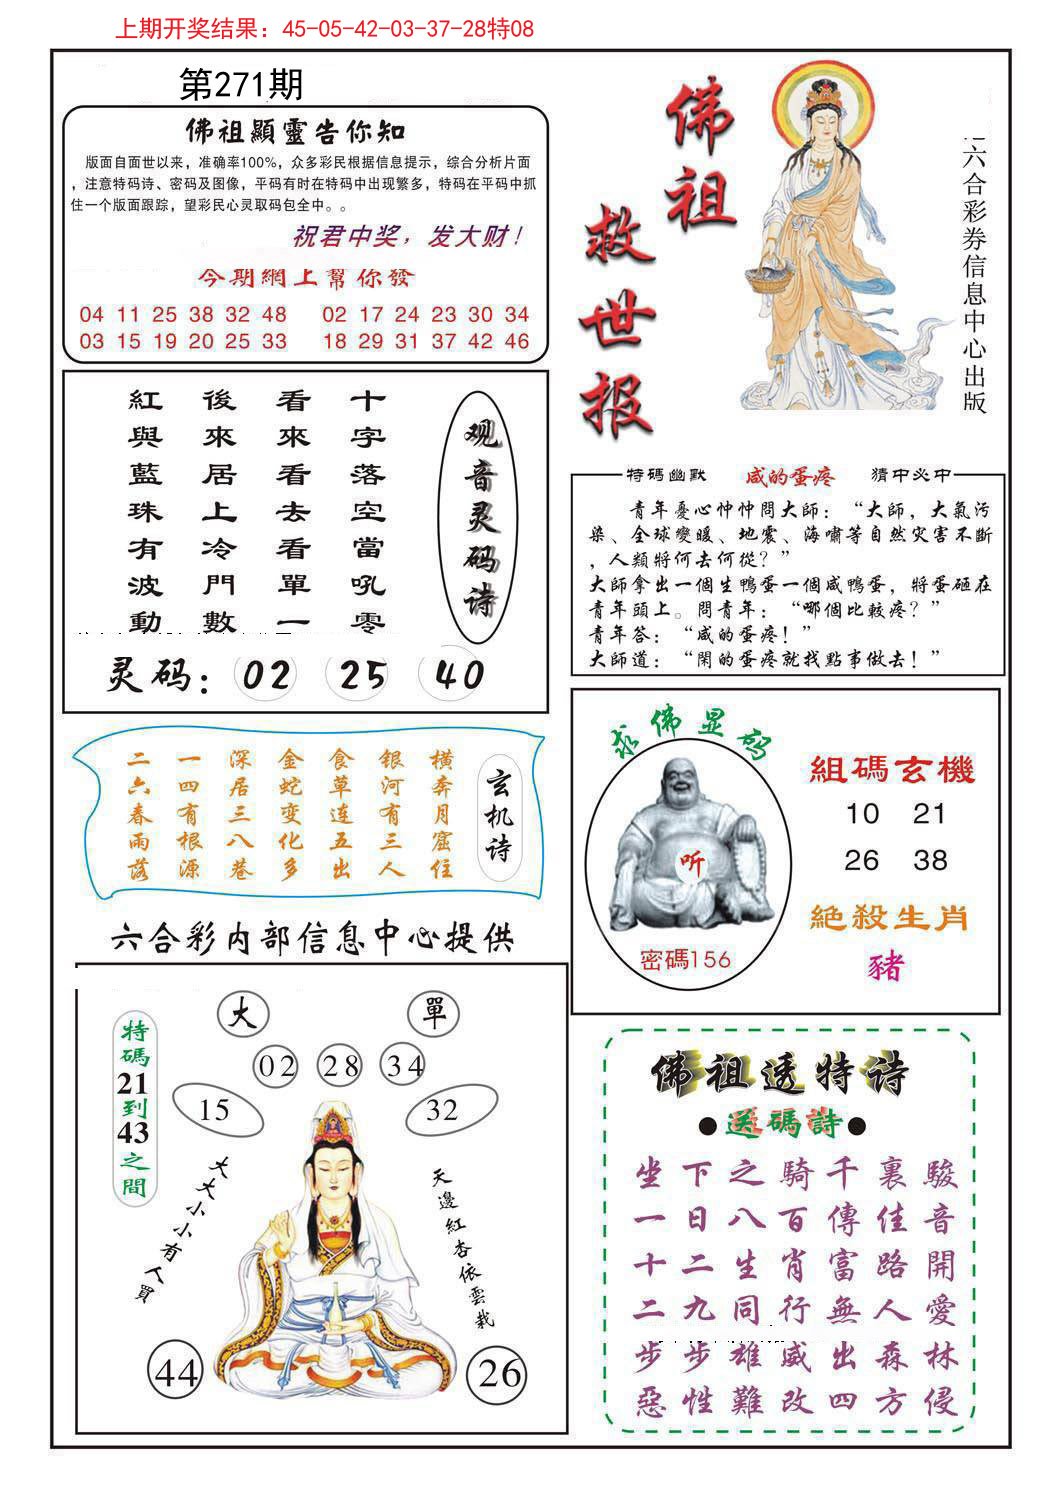 上期开奖结果：45-05-42-03-37-28特08
第271期
佛祖顯靈告你知
版面自面世以来，准确率100%，众多彩民根据信息提示，综合分析片面
，注意特码诗、密码及图像，平码有时在特码中出现繁多，特码在平码中抓
住一个版面跟踪，望彩民心灵取码包全中。。
祝君中奖，发大财！
今期網上幫你發
04 11 25 38 32 48 02 17 24 23 30 34
03 15 19 20 25 33 18 29 31 37 42 46
佛祖
救世报
六合彩券信息中心出版
观音灵码诗
十字落空當吼零
看來看去看單一
後來居上冷門數
紅與藍珠有波動
灵码：02 25 40
特碼幽默 咸的蛋疼 猜中必中
青年憂心忡忡問大師：“大師，大氣污
染、全球變暖、地震、海嘯等自然灾害不斷
，人類將何去何從？”
大師拿出一個生鴨蛋一個咸鴨蛋，將蛋砸在
青年頭上。問青年：“哪個比較疼？”
青年答：“咸的蛋疼！”
大師道：“閑的蛋疼就找點事做去！”
玄机诗
横奔月窟住
银河有三人
食草连五出
金蛇变化多
深居三八巷
一四有根源
二六春雨落
求佛显码
听
密碼156
組碼玄機
10 21
26 38
絕殺生肖
豬
六合彩内部信息中心提供
特碼21到43之間
大 單
02 28 34
15 32
大大小小有人買
天邊紅杏依雲栽
44 26
佛祖透特诗
●送碼詩●
坐下之騎千裏駿
一日八百傳佳音
十二生肖富路開
二九同行無人愛
步步雄威出森林
惡性難改四方侵